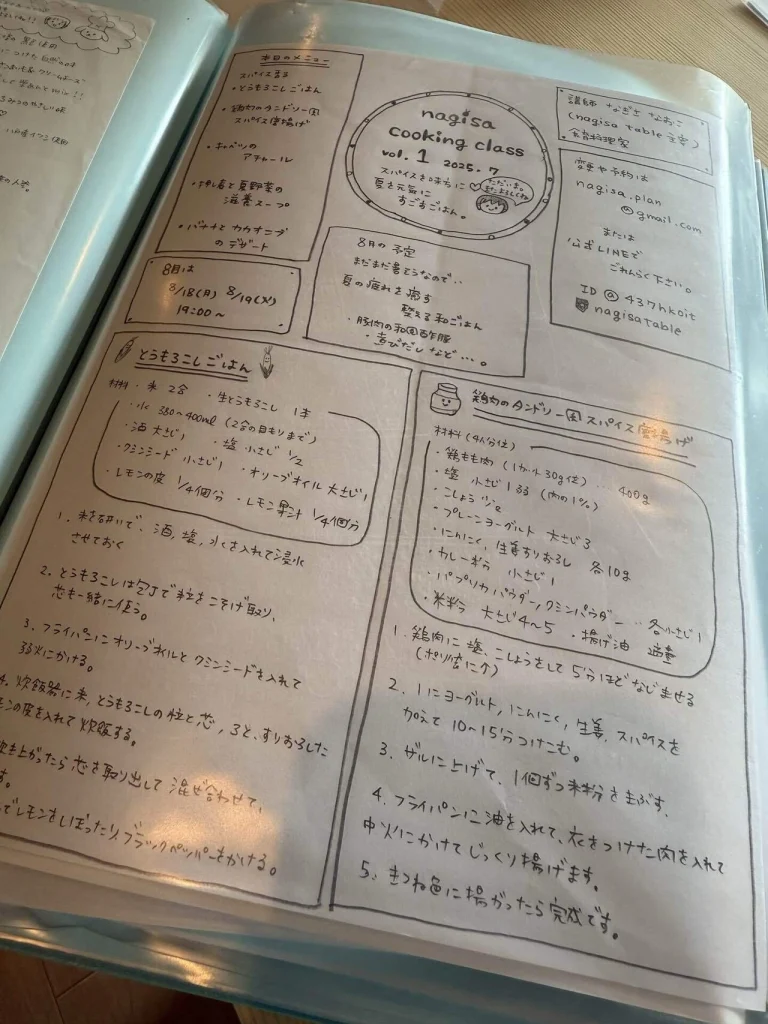 黒と使用
クリームチーズ
本日のメニュー
スパイス香る
・とうもろこしごはん
・鶏肉のタンドリー風
スパイス唐揚げ
・キャベツの
アチャール
・押し麦と夏野菜の
滋養スープ
・バナナとカルダモンの
のデザート
nagisa
cooking class
vol. 1 2025. 7
スパイスを味方に♡
夏を元気に
すごすごはん。
ただいま。
またよろしくね
講師 なぎさ なおこ
(nagisa table 主宰)
・食育料理家
変更や予約は
nagisa.plan
@gmail.com
または
公式LINEで
ごれんらく下さい。
ID @437hkoit
nagisatable
8月は
8/18(月) 8/19(火)
19:00〜
8月の予定
まだまだ暑そうなので..
夏の疲れを癒す
整える和ごはん
・豚肉の和風酢豚
・煮びたしなど…。
とうもろこしごはん
材料・米 2合 ・生とうもろこし 1本
・水 380〜400ml (2合の目もりまで)
・酒 大さじ1 ・塩 小さじ1/2
・クミンシード 小さじ1 ・オリーブオイル 大さじ1
・レモンの皮 1/4個分 ・レモン果汁 1/4個分
1. 米を研いで、酒,塩,水を入れて浸水
させておく
2. とうもろこしは包丁で粒をこそげ取り、
芯も一緒に使う。
3. フライパンにオリーブオイルとクミンシードを入れて
弱火にかける。
4. 炊飯器に米,とうもろこしの粒と芯,3と、すりおろした
モンの皮を入れて炊飯する。
炊き上がったら芯を取り出して混ぜ合わせて、
す。
でレモンをしぼったり、ブラックペッパーをかける。
鶏肉のタンドリー風スパイス唐揚げ
材料(4人分位)
・鶏もも肉(1カット30g位)… 400g
・塩 小さじ1弱 (肉の1%)
・こしょう 少々
・プレーンヨーグルト 大さじ3
・にんにく,生姜すりおろし 各10g
・カレー粉 小さじ1
・パプリカパウダー,クミンパウダー … 各小さじ1
・米粉 大さじ4〜5 ・揚げ油 適量
1. 鶏肉に塩、こしょうをして5分ほどなじませる
(ポリ袋に个)
2. 1にヨーグルト,にんにく,生姜,スパイスを
加えて10〜15分つけこむ。
3. ザルに上げて、1個ずつ米粉をまぶす。
4. フライパンに油を入れて、衣をつけた肉を入れて
中火にかけてじっくり揚げます。
5. きつね色に揚がったら完成です。